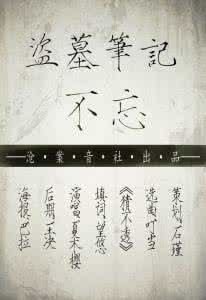 盜墓筆記
不忘
沧·業·音·社·出·品
策划 石瑾
选曲 叶当
《猜不透》
填词 望悠
演唱 夏末樱
后期
海报 巴拉